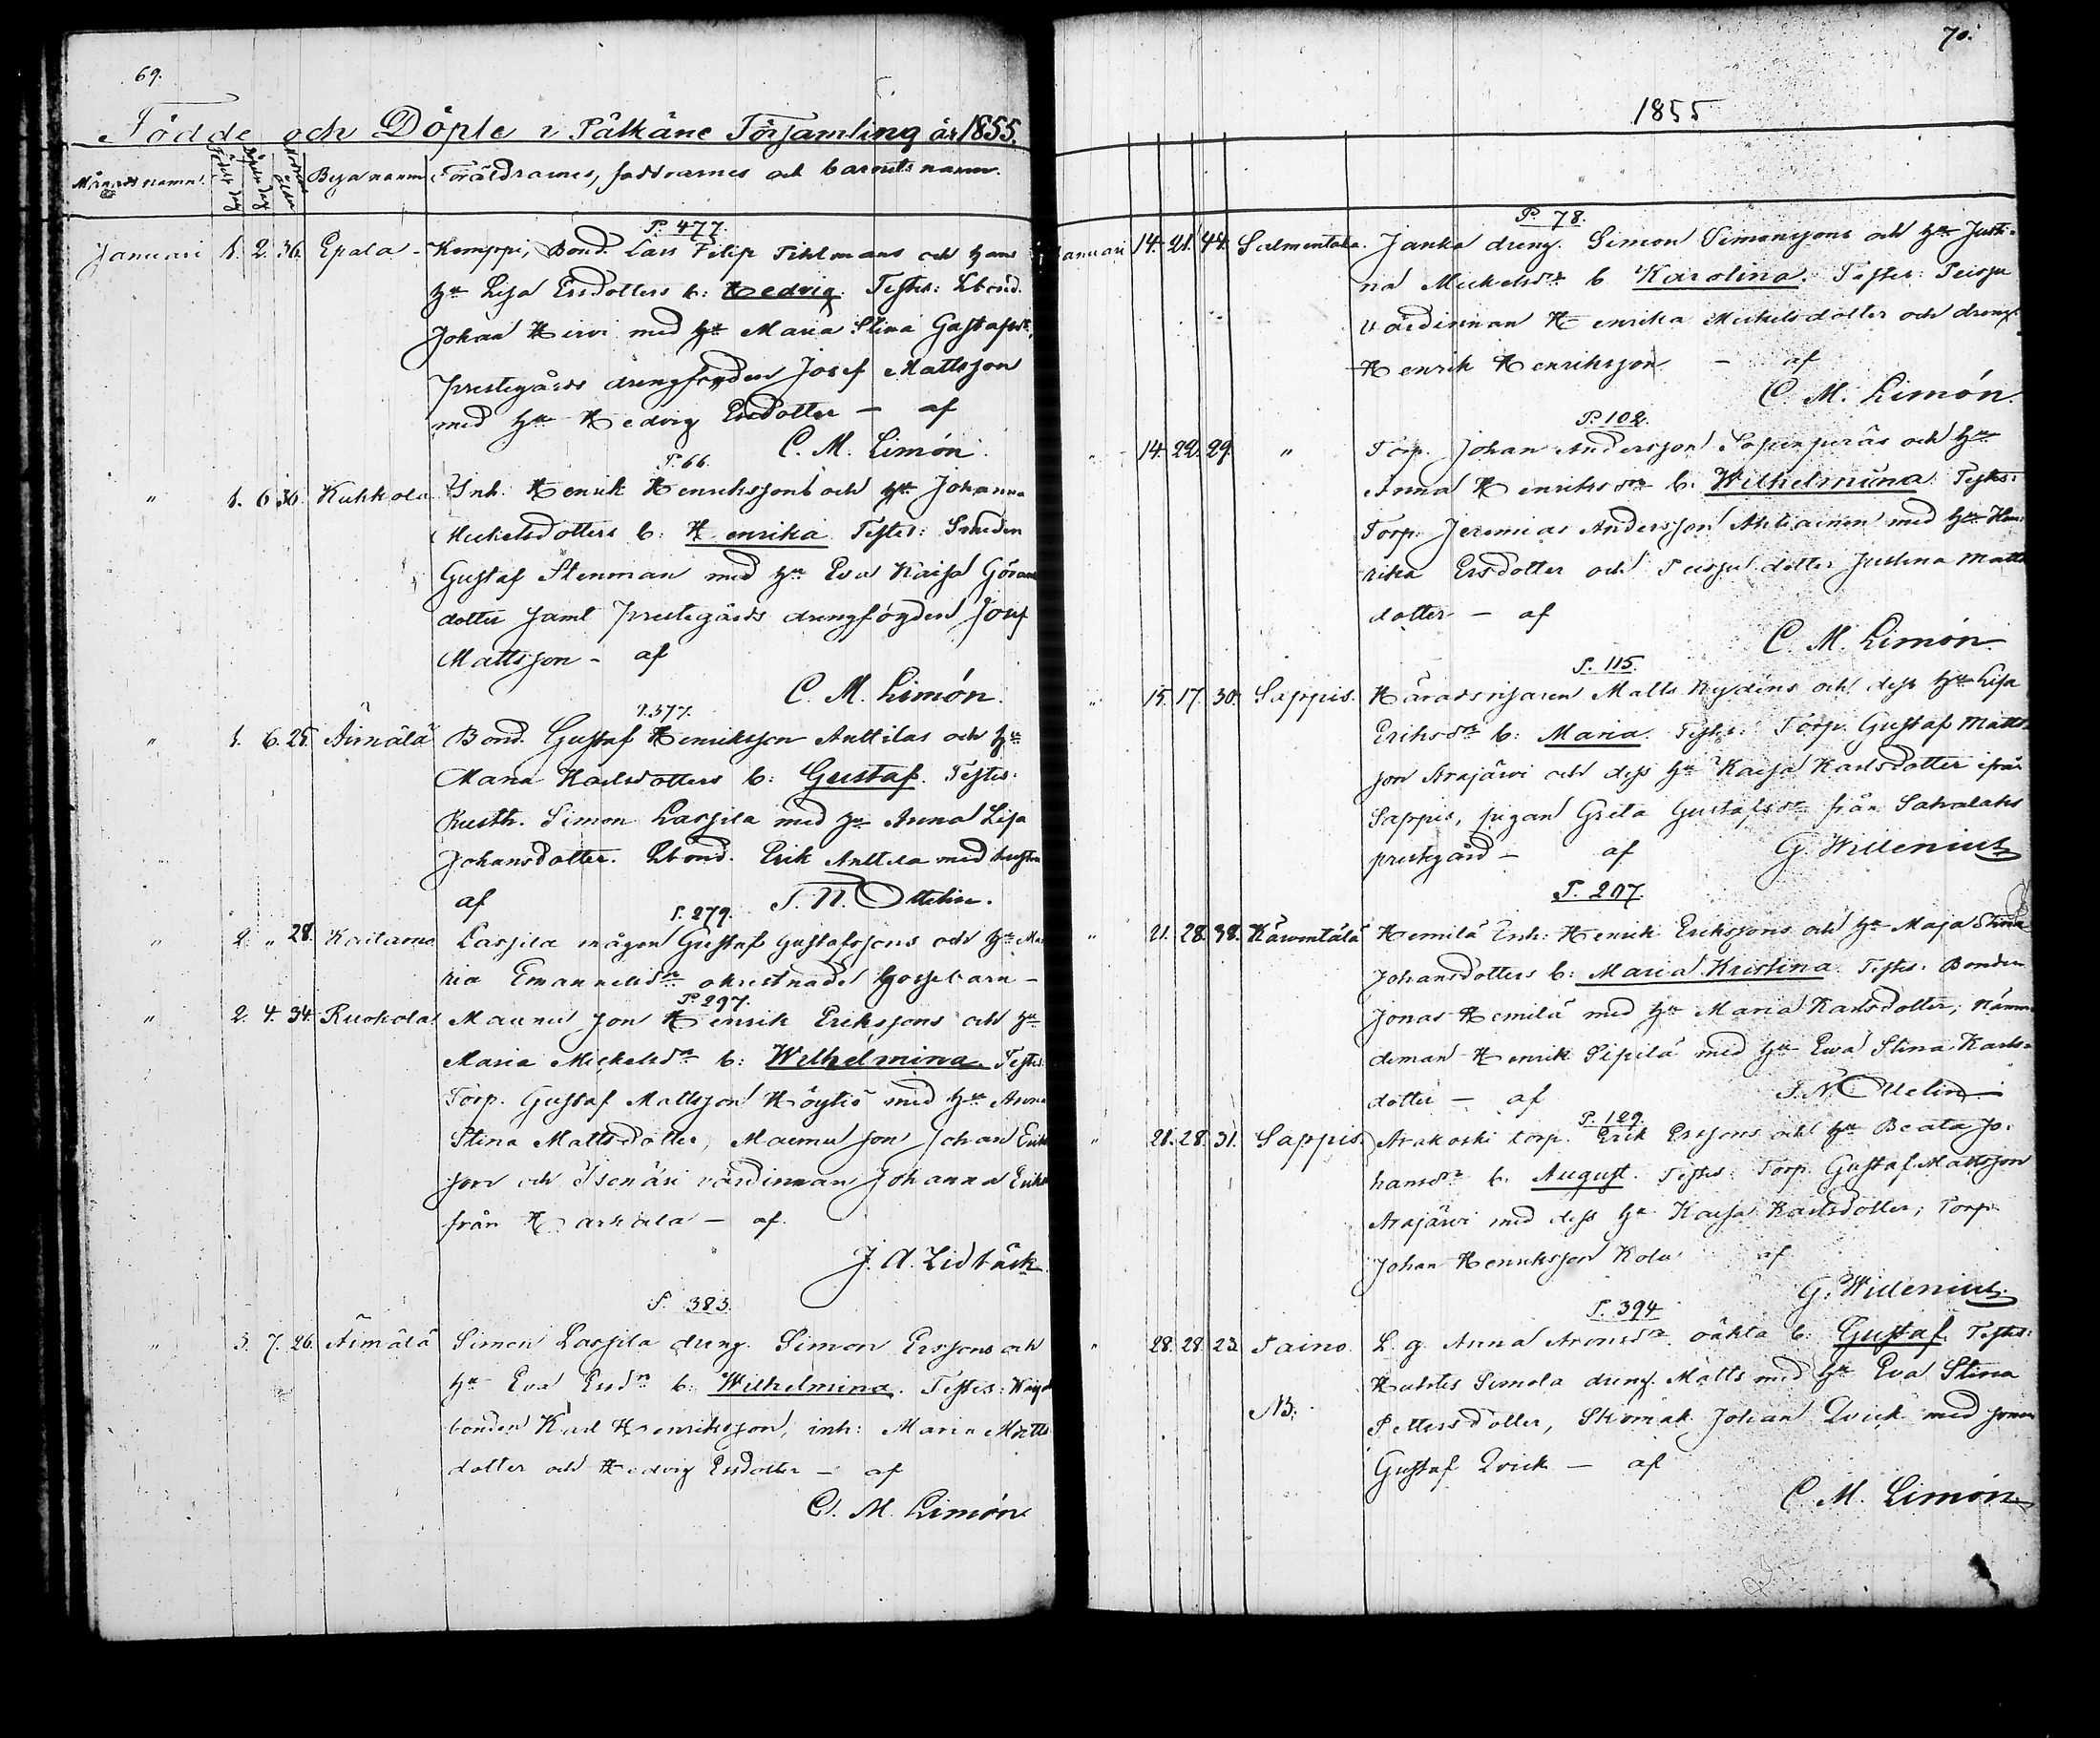 69.
Födde och Döpte i Pälkäne Församling år 1855.
Månads namn. Födelse dag Döpelse dag Modrens ålder Byanamn Föräldrarnes, faddrarnes och barnets namn.
P. 477.
Januari 1. 2. 36. Epala - Kemppi, Bond. Lars Filip Tihlmans och hans
hu Lisa Ersdotters b: Hedvig. Testes: Lbond.
Johan Hirvi med hu Maria Stina Gustafsdr,
prestegårds drengfogden Josef Mattsson
med hu Hedvig Ersdotter — af
C. M. Limón.
P. 66.
" 1. 6. 30. Kukkola Inh. Henrik Henrikssons och hu Johanna
Mickelsdotters b: Henrika Testes: Smeden
Gustaf Stenman med hu Eva Kaisa Görans
dotter samt prestegårds drengfogden Josef
Mattsson - af
C. M. Limón.
P. 377.
" 1. 6. 25. Äimälä Bond. Gustaf Henriksson Anttilas och hu
Maria Karlsdotters b: Gustaf. Testes:
Rusth. Simon Lassila med hu Anna Lisa
Johansdotter. Lbond. Erik Anttila med hustru
af J. N. Ottelin.
P. 279.
" 2. " 28. Kaitamo Lassila mågen Gustaf Gustafssons och hu Ma
ria Emanuelsdrs okristnade gossebarn -
P. 297.
" 2. 4. 34. Ruokola Maunu son Henrik Erikssons och hu
Maria Mickelsdrs b: Wilhelmina. Testes:
Torp. Gustaf Mattsson Höytis med hu Anna
Stina Mattsdotter, Maunu son Johan Eriks
son och Isenäri värdinnan Johanna Eriksd
från Harhala — af
J. A. Lidbäck.
P. 383.
" 3. 7. 26. Äimälä Simon Lassila dreng. Simon Erssons och
hu Eva Ersdrs b: Wilhelmina. Testes:
bonden Karl Henriksson, inh: Maria Matts
dotter och Hedvig Ersdotter — af
C. M. Limón
70.
1855
P. 78.
Januari 14. 21. 44. Salmentaka. Janka dreng. Simon Simonssons och hu Justi-
na Mickelsdrs b Karolina. Testes: Peissu
värdinnan Henrika Mickelsdotter och dreng.
Henrik Henriksson — af
C. M. Limón.
P. 102.
" 14. 22. 29. " Torp. Johan Andersson Sopenperäs och hu
Anna Henriksdrs b: Wilhelmina. Testes:
Torp. Jeremias Andersson Ahtiainen med hu Hen-
rika Ersdotter och Peissu dotter Justina Matts
dotter — af
C. M. Limón
P. 115.
" 15. 17. 30. Sappis. Häradsrisaren Matts Rydéns och dess hu Lisa
Eriksdrs b: Maria. Testes: Torp. Gustaf Matts
son Arajärvi och dess hu Kaisa Karlsdotter ifrån
Sappis, pigan Greta Gustafsdr från Sahalaks
prestegård — af G. Willenius
P. 207.
" 21. 28. 38. Kärventälä Hemilä Inh: Henrik Erikssons och hu Maja Stina
Johansdotters b: Maria Kristina. Testes: Bonden
Jonas Hemilä med hu Maria Karlsdotter, Nämn
deman Henrik Sipilä med hu Eva Stina Karls-
dotter — af J. N. Ottelin
P. 129.
" 21. 28. 31. Sappis. Arakoski torp. Erik Erssons och hu Beata Jo-
hansdrs b. August. Testes: Torp. Gustaf Mattsson
Arajärvi med dess hu Kaisa Karlsdotter; Torp.
Johan Henriksson Kola af
G. Willenius.
P. 394
" 28. 28. 23. Taino L. g. Anna Aronsdrs oäkta b: Gustaf. Testes:
Huhtis Simola dreng. Matts med hu Eva Stina
NB: Pettersdotter, Skomak. Johan Qvick med sonen
Gustaf Qvick — af
C. M. Limón